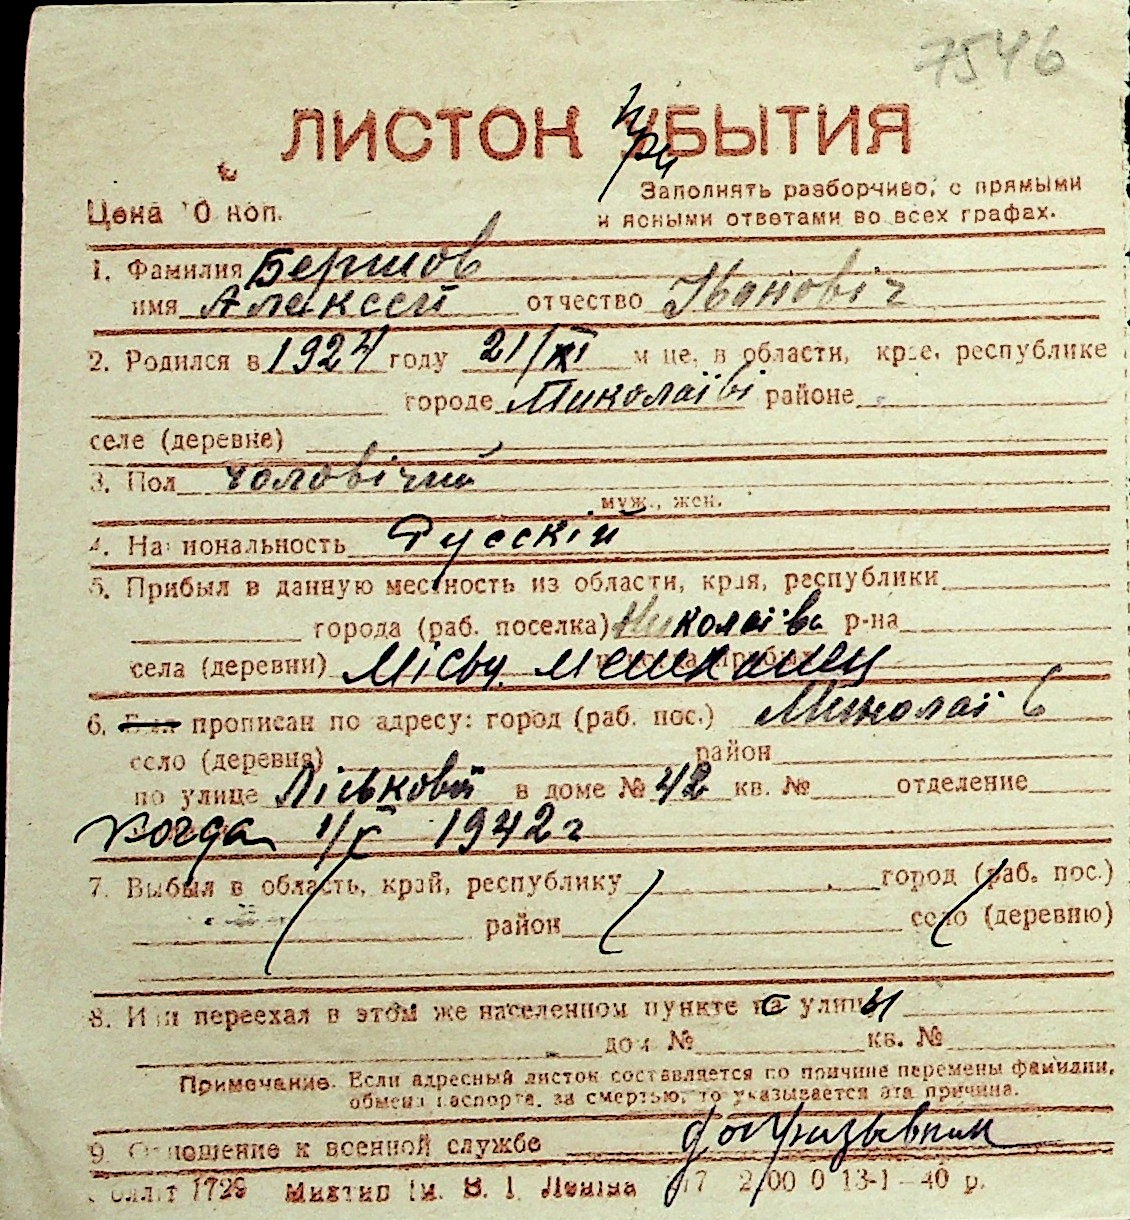 7546
ЛИСТОК УБЫТИЯ
при
Цена 10 коп.
Заполнять разборчиво, с прямыми
и ясными ответами во всех графах.
1. Фамилия Бершов
имя Алексей отчество Івановіч
2. Родился в 1924 году 21/XI м-це, в области, крае, республике
городе Миколаїві районе
селе (деревне)
3. Пол чоловічий
муж., жен.
4. Национальность Русскій
5. Прибыл в данную местность из области, края, республики
города (раб. поселка) Миколаїва р-на
села (деревни) Місьц. мешканец
6. Был прописан по адресу: город (раб. пос.) Миколаїв
село (деревня) район
по улице в доме № 42 кв. № отделение
когда 1/X 1942 г
7. Выбыл в область, край, республику город (раб. пос.)
район село (деревню)
8. Или переехал в этом же населенном пункте с улицы
дом № кв. №
Примечание. Если адресный листок составляется по причине перемены фамилии,
обмена паспорта, за смертью, то указывается эта причина.
9. Отношение к военной службе допризывник
1729 Миктип ім. В. І. Леніна 13-I-40 р.